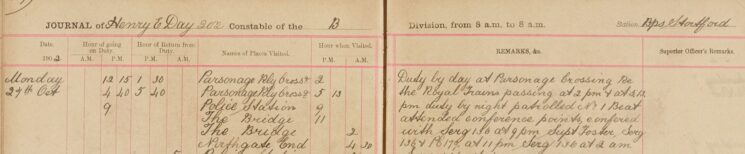 JOURNAL of Henry E Day 202 Constable of the B Division, from 8 a.m. to 8 a.m. Station Bps Stortford
Date. Hour of going on Duty. Hour of Return from Duty. Names of Places Visited. Hour when Visited. REMARKS, &c. Superior Officer's Remarks.
1902 A.M. P.M. A.M. P.M. A.M. P.M.
Monday 12 15 1 30 Parsonage Rly Cross 2 Duty by day at Parsonage Crossing Re
27th Oct 4 40 5 40 Parsonage Rly Cross 5 13 the Royal Trains passing at 2 pm & at 5.13
9 Police Station 9 pm duty by night patrolled No 1 Beat
The Bridge 11 attended conference points, confered
The Bridge 2 with Serg 136 at 9 pm Supt Foster, Serg
Northgate End 4 30 136 & PC 178, at 11 pm, Serg 136 at 2 am